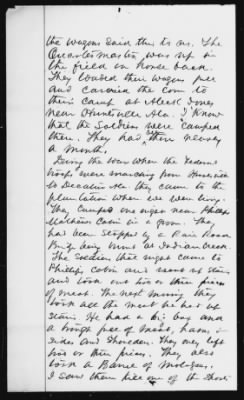 the wagons said this to us. The
Quartermaster was up in
the field on horse back.
They loaded their wagons full
and carried the corn to
their Camp at Aleck Jones
near Huntsville Ala. I know
that the Soldiers were camped
there. They had been there nearly
a month.
During the war when the Federal
troops were marching from Huntsville
to Decatur Ala they came to the
plantation where we were living.
They Camped one night near Phillip
Cabin in a grove. They
had been stopped by a Rail Road
Bridge being burnt at Indian Creek.
The Soldiers that night came to
Phillips cabin and went up stairs
and took out two or three pieces
of meat. The next morning they
took all the meat he had up
Stairs. He had a big box and
a trough full of meat, hams &
sides and Shoulders. They only left
two or three pieces. They also
took a Barrel of Molasses.
I saw them kill one of the